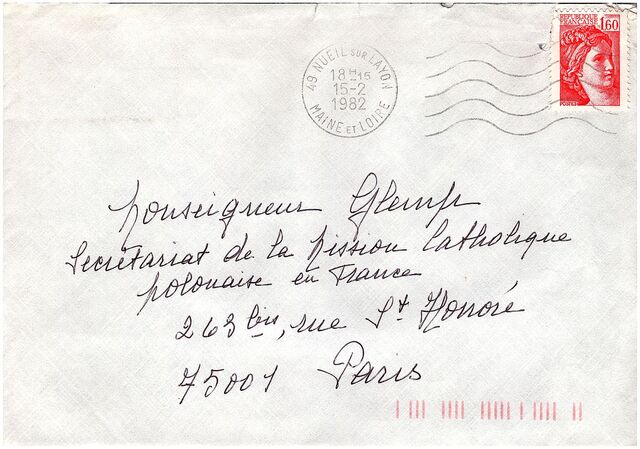 49 NUEIL SUR LAYON
18H15
15-2
1982
MAINE ET LOIRE
REPUBLIQUE
FRANCAISE
1,60
POSTES
Monseigneur Glemp
Secrétariat de la Mission Catholique
polonaise en France
263 bis, rue St Honoré
75001 Paris